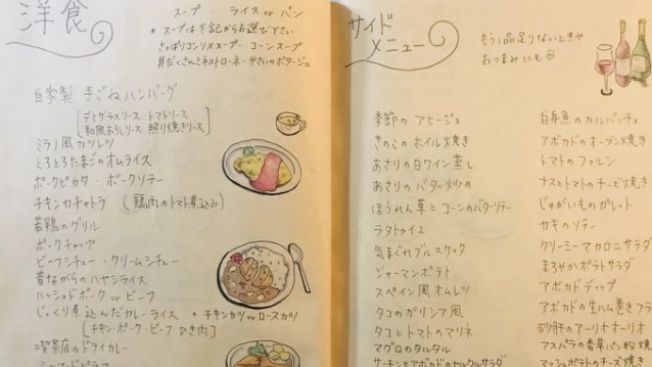 洋食
スープ ・ ライス or パン
* スープは下記からお選び下さい
さっぱりコンソメスープ・コーンスープ
具だくさんミネストローネ・やさいのポタージュ
自家製 手ごねハンバーグ
[デミグラスソース トマトソース
和風おろしソース 照り焼きソース]
ミラノ風カツレツ
とろとろたまごのオムライス
ポークピカタ ・ ポークソテー
チキンカチャトラ (鶏肉のトマト煮込み)
若鶏のグリル
ポークチャップ
ビーフシチュー ・ クリームシチュー
昔ながらのハヤシライス
ハッシュドポーク or ビーフ
じっくり煮込んだカレーライス + チキンカツ or ロースカツ
[チキン・ポーク・ビーフ・ひき肉]
喫茶店のドライカレー
サイドメニュー
もう1品足りないときや
おつまみにも
季節のアヒージョ
きのこのホイル焼き
あさりの白ワイン蒸し
あさりのバター炒め
ほうれん草とコーンのバターソテー
ラタトゥイユ
気まぐれブルスケッタ
ジャーマンポテト
スペイン風オムレツ
タコのガリシア風
タコとトマトのマリネ
マグロのタルタル
サーモンとアボカドのセルクルサラダ
白身魚のカルパッチョ
アボカドのオーブン焼き
トマトのファルシ
ナスとトマトのチーズ焼き
じゃがいものガレット
カキのソテー
クリーミーマカロニサラダ
まろやかポテトサラダ
アボカドディップ
アボカドの生ハム巻きフラ
砂肝のアーリオオーリオ
アスパラの香草パン粉焼
マッシュポテトのチーズ焼